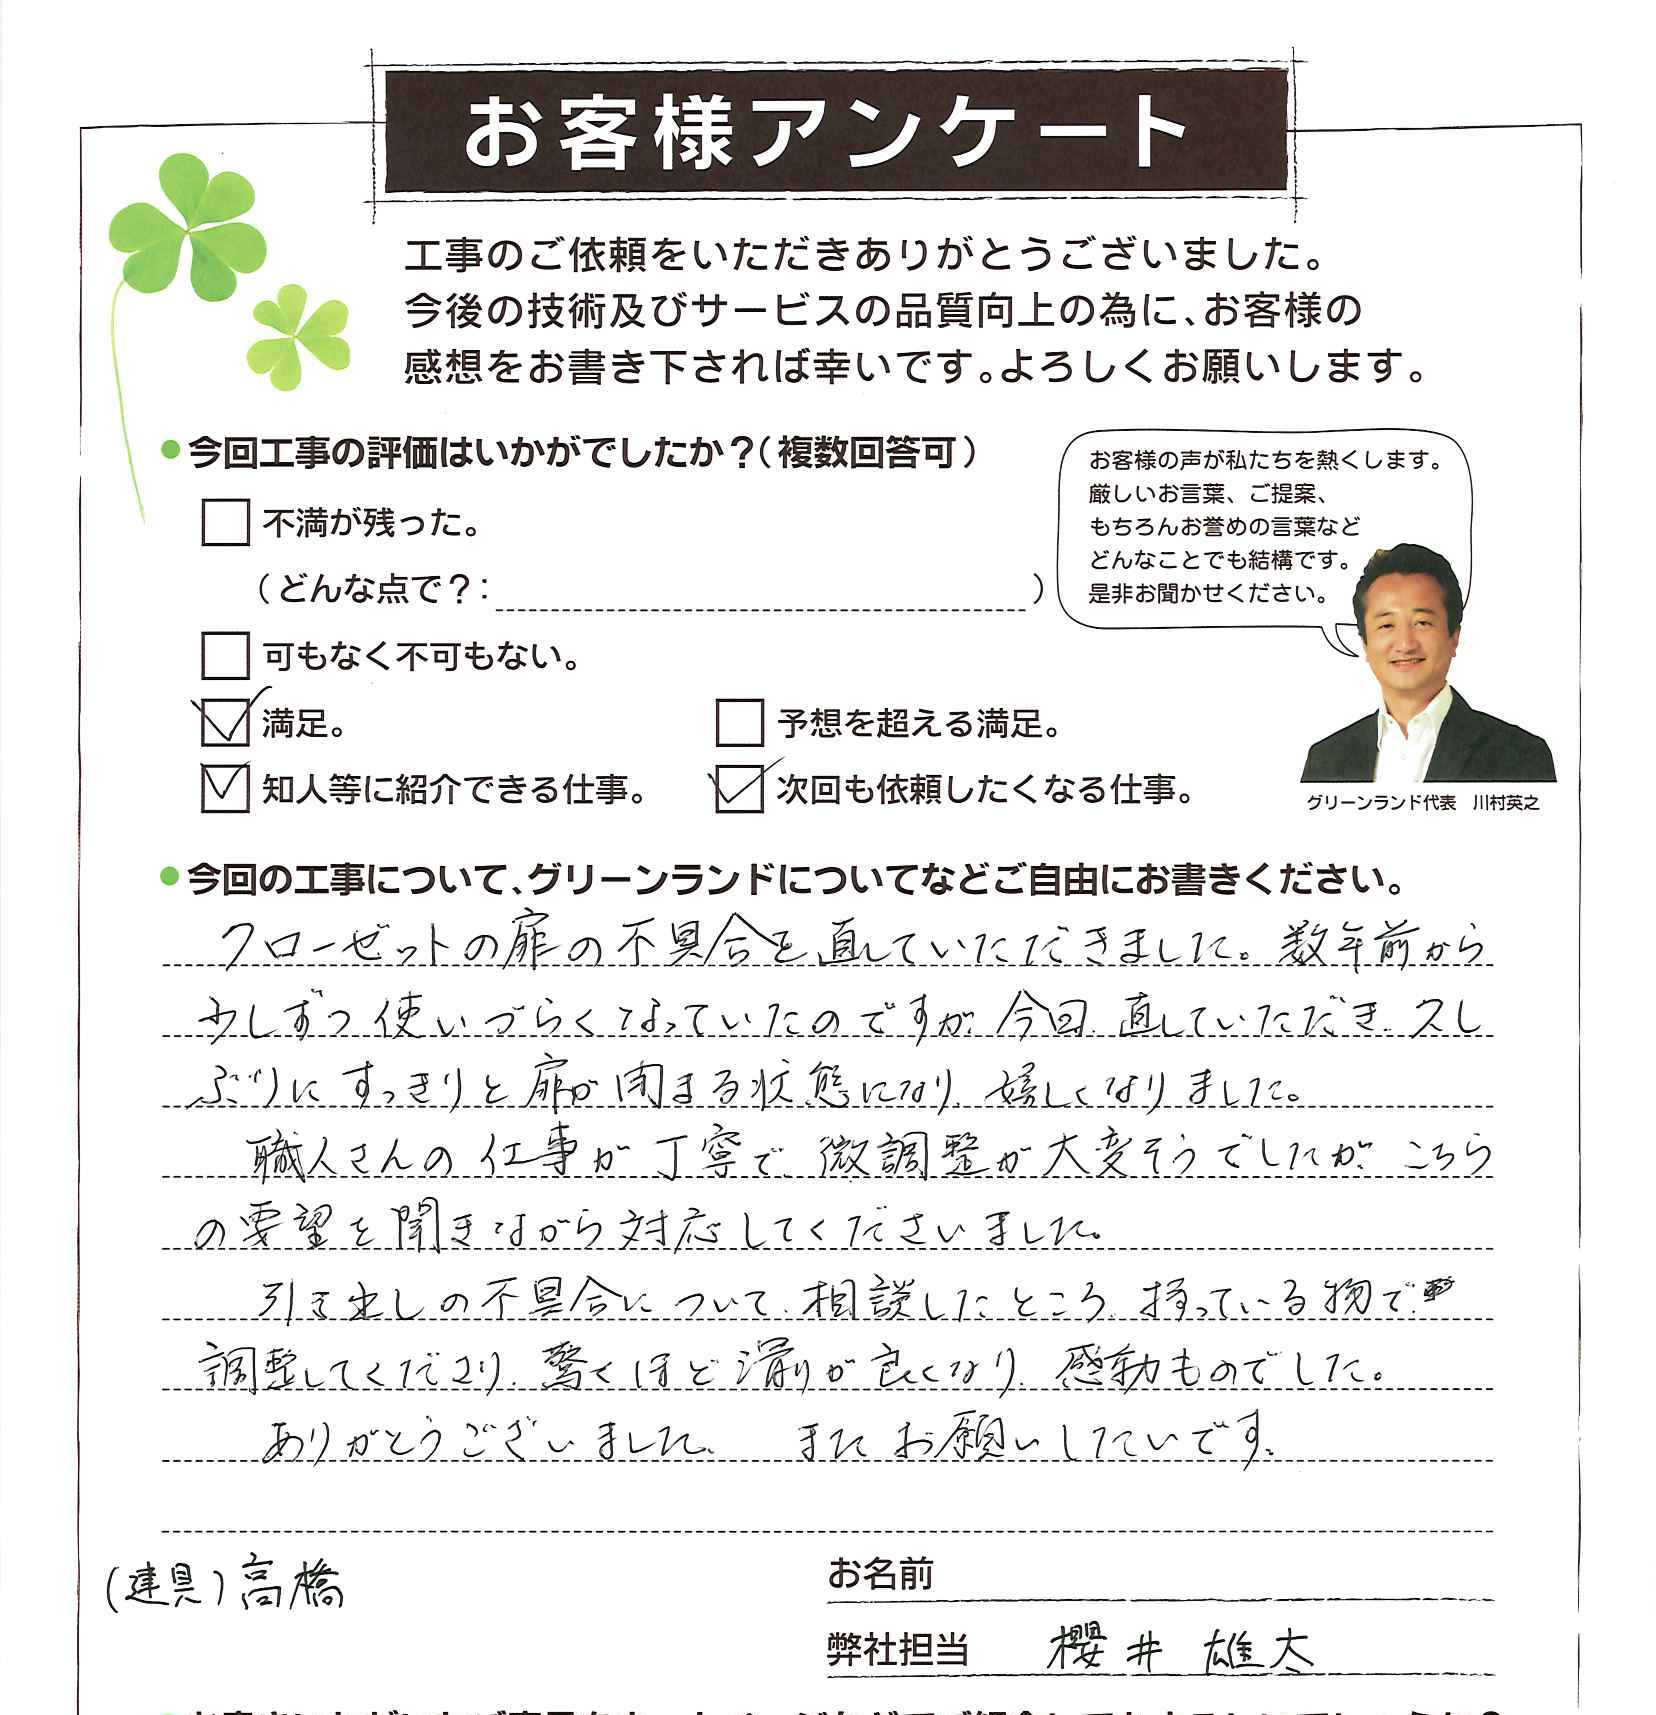 お客様アンケート
工事のご依頼をいただきありがとうございました。
今後の技術及びサービスの品質向上の為に、お客様の
感想をお書き下されば幸いです。よろしくお願いします。
●今回工事の評価はいかがでしたか？（複数回答可）
不満が残った。
（どんな点で？：　）
可もなく不可もない。
満足。
予想を超える満足。
知人等に紹介できる仕事。
次回も依頼したくなる仕事。
お客様の声が私たちを熱くします。
厳しいお言葉、ご提案、
もちろんお誉めの言葉など
どんなことでも結構です。
是非お聞かせください。
グリーンランド代表　川村英之
●今回の工事について、グリーンランドについてなどご自由にお書きください。
クローゼットの扉の不具合を直していただきました。数年前から
少しずつ使いづらくなっていたのですが、今回、直していただき、久し
ぶりにすっきりと扉が閉まる状態になり、嬉しくなりました。
職人さんの仕事が丁寧で、微調整が大変そうでしたが、こちら
の要望を聞きながら対応してくださいました。
引き出しの不具合について、相談したところ、持っている物で
調整してくださり、驚くほど滑りが良くなり、感動ものでした。
ありがとうございました。　またお願いしたいです。
(建具)高橋
お名前
弊社担当　櫻井 雄太